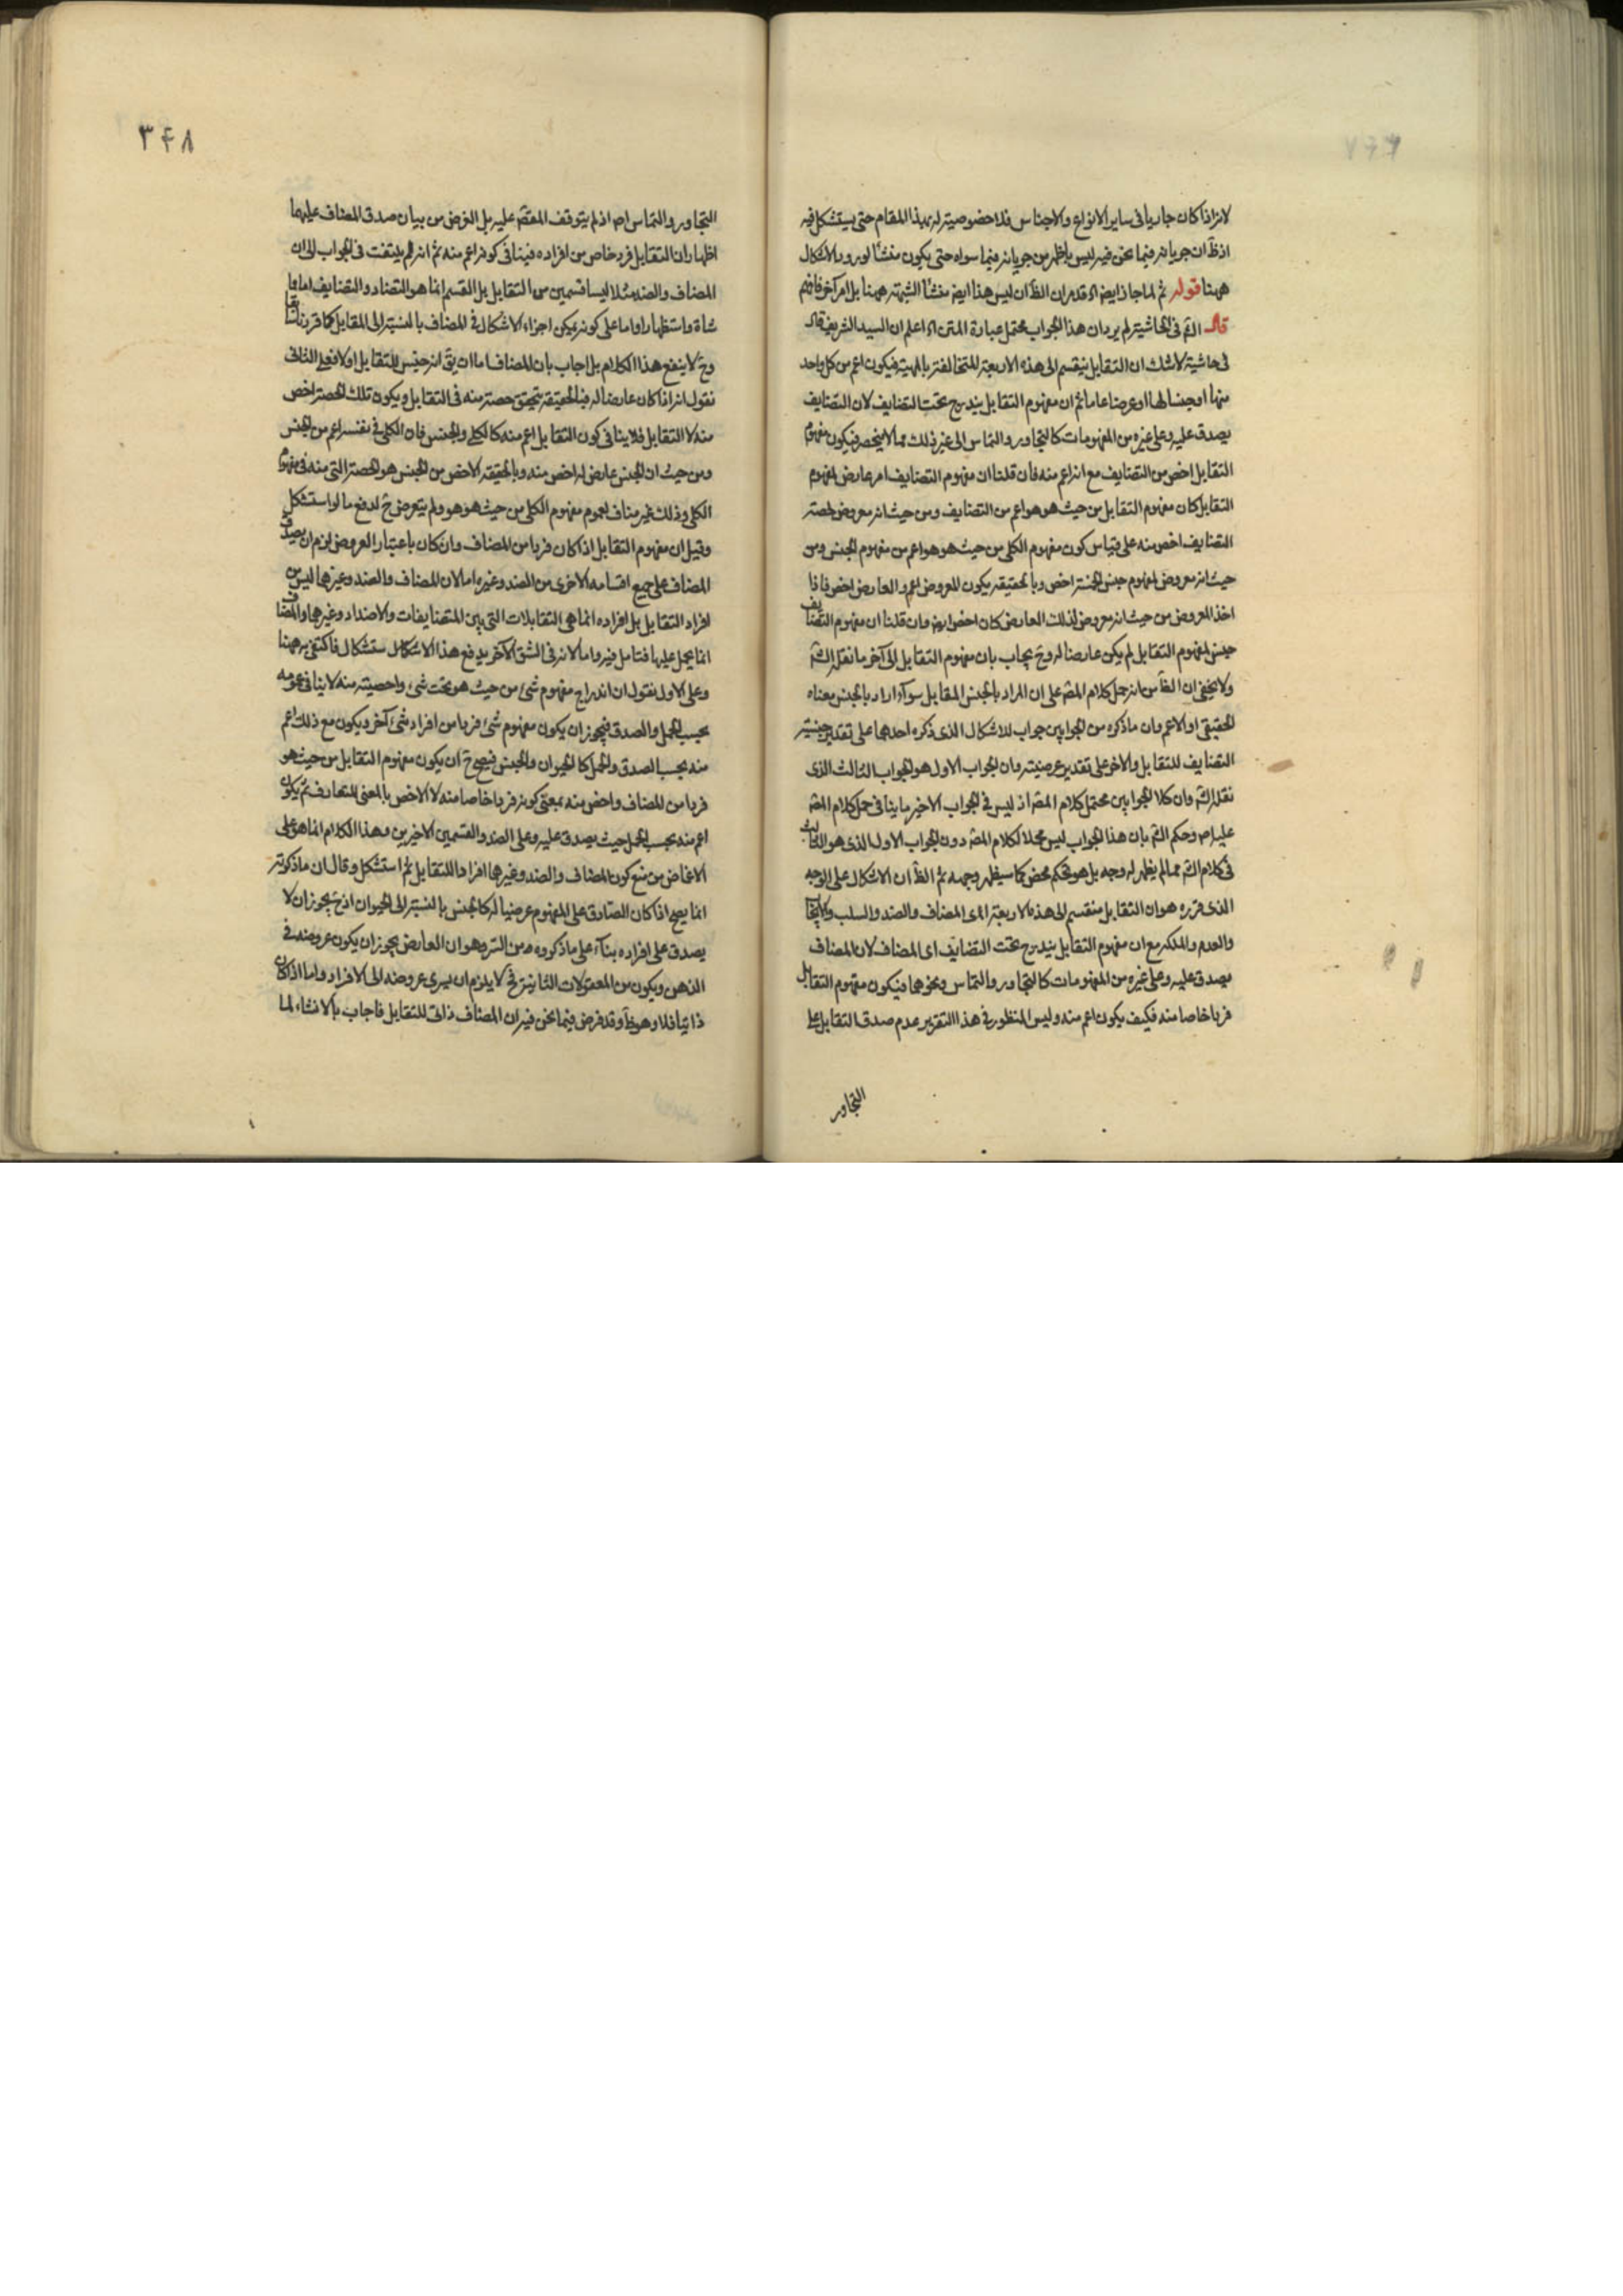 لانه اذا كان جاريا فى ساير الانواع والاجناس فلا خصوصية له بهذا المقام حتى يستشكل فيه
اذ ظ ان جريانه فيما نحن فيه ليس باظهر من جريانه فيما سواه حتى يكون منشأ لورود الاشكال
ههنا قوله ثم لما جاز ايض اه قد مر ان الظ ان ليس هذا ايض منشأ الشبهة ههنا بل امر آخر فافهم
قال الشم فى الحاشية لم يرد ان هذا الجواب محتمل عبارة المتن اه اعلم ان السيد الشريف قال
فى حاشية لا شك ان التقابل ينقسم الى هذه الاربعة المتخالفة بالمهية فيكون اعم من كل واحد
منها او جنسا لها او عرضا عاما ثم ان مفهوم التقابل يندرج تحت التضايف لان التضايف
يصدق عليه وعلى غيره من المفهومات كالتجاور والتماس الى غير ذلك مما لا ينحصر فيكون مفهوم
التقابل اخص من التضايف مع انه اعم منه فان قلنا ان مفهوم التضايف امر عارض لمفهوم
التقابل كان مفهوم التقابل من حيث هو هو اعم من التضايف ومن حيث انه معروض لحصة
التضايف اخص منه على قياس كون مفهوم الكلى من حيث هو هو اعم من مفهوم الجنس ومن
حيث انه معروض لمفهوم جنس الجنسة اخص وبالحقيقة يكون المعروض اعم والعارض اخص فاذا
اخذ المعروض من حيث انه معروض لذلك العارض كان اخص ايض وان قلنا ان مفهوم التضايف
جنس لمفهوم التقابل لم يكن عارضا له وح يجاب بان مفهوم التقابل الى آخر ما نقله الشم
ولا يخفى ان الظ من انه حمل كلام المصّ على ان المراد بالجنس المقابل سوآء اراد بالجنس معناه
الحقيقى او الاعم وان ما ذكره من الجوابين جواب للاشكال الذى ذكره احدهما على تقدير جنسية
التضايف للتقابل والآخر على تقدير عرضيته وان الجواب الاول هو الجواب الثالث الذى
نقله الشم وان كلا الجوابين محتمل كلام المصّ اذ ليس فى الجواب الاخير ما ينافى حمل كلام المصّ
عليه اص وحكم الشم بان هذا الجواب ليس محملا لكلام المصّ دون الجواب الاول الذى هو الثالث
فى كلام الشم مما لم يظهر له وجه بل هو تحكم محض كما سيظهر وجهه ثم الظ ان الاشكال على الوجه
الذى قرره هو ان التقابل منقسم الى هذه الاربعة اى المضاف والضد والسلب والايجاب
والعدم والملكة مع ان مفهوم التقابل يندرج تحت التضايف اى المضاف لان المضاف
يصدق عليه وعلى غيره من المفهومات كالتجاور والتماس ونحوهما فيكون مفهوم التقابل
فردا خاصا منه فكيف يكون اعم منه وليس المنظور فى هذا التقرير عدم صدق التقابل على
التجاور
٣۴٨
التجاور والتماس اص اذ لم يتوقف المقصّ عليه بل الغرض من بيان صدق المضاف عليهما
اظهار ان التقابل فرد خاص من افراده فينافى كونه اعم منه ثم انه لم يلتفت فى الجواب الى ان
المضاف والضد مثلا ليسا قسمين من التقابل بل القسم انما هو التضاد والتضايف اما
شاة واستظهارا واما على كونه يمكن اجراء الاشكال فى المضاف بالنسبة الى المقابل كما قررنا سابقا
وح لا ينفع هذا الكلام بل اجاب بان المضاف اما ان يقّ انه جنس للتقابل او لا فعلى الثانى
نقول انه اذا كان عارضا له فبالحقيقة يتحقق حصة منه فى التقابل ويكون تلك الحصة اخص
منه لا التقابل فلا ينافى كون التقابل اعم منه كالكلى والجنس فان الكلى فى نفسه اعم من الجنس
ومن حيث ان الجنس عارض له اخص منه وبالحقيقة الاخص من الجنس هو الحصة التى منه فى مفهوم
الكلى وذلك غير مناف لعموم مفهوم الكلى من حيث هو هو ولم يتعرض ح لدفع ما لو استشكل
وقيل ان مفهوم التقابل اذا كان فردا من المضاف وان كان باعتبار العروض لزم ان يصدق
المضاف على جميع اقسامه الاخرى من الضد وغيره اما لان المضاف والضد وغيرهما ليس من
افراد التقابل بل افراده انما هى التقابلات التى بين المتضايفات والاضداد وغيرهما والمضاف
انما يحمل عليها فتامل فيه واما لانه فى الشق الآخر يدفع هذا الاشكال ستشكال فاكتفى به ههنا
وعلى الاول نقول ان اندراج مفهوم شئ من حيث هو تحت شئ واخصيته منه لا ينافى عمومه
بحسب الحمل والصدق فيجوز ان يكون مفهوم شئ فردا من افراد شئ آخر ويكون مع ذلك اعم
منه بحسب الصدق والحمل كالحيوان والجنس فيصح ح ان يكون مفهوم التقابل من حيث هو
فردا من المضاف واخص منه بمعنى كونه فردا خاصا منه لا الاخص بالمعنى المتعارف ثم يكون
اعم منه بحسب الحمل حيث يصدق عليه وعلى الضد والقسمين الاخيرين وهذا الكلام انما هو على
الاغماض من منع كون المضاف والضد وغيرهما افرادا للتقابل ثم استشكل وقال ان ما ذكرته
انما يصح اذا كان الصادق على المفهوم عرضيا له كالجنس بالنسبة الى الحيوان اذ ح يجوز ان لا
يصدق على افراده بنآء على ما ذكروه من السر وهو ان العارض يجوز ان يكون عروضه فى
الذهن ويكون من المعقولات الثانية فح لا يلزم ان يسرى عروضه الى الافراد واما اذا كان
ذاتيا فلا وهو ظ وقد فرض فيما نحن فيه ان المضاف ذاتى للتقابل فاجاب بالانشاء لما